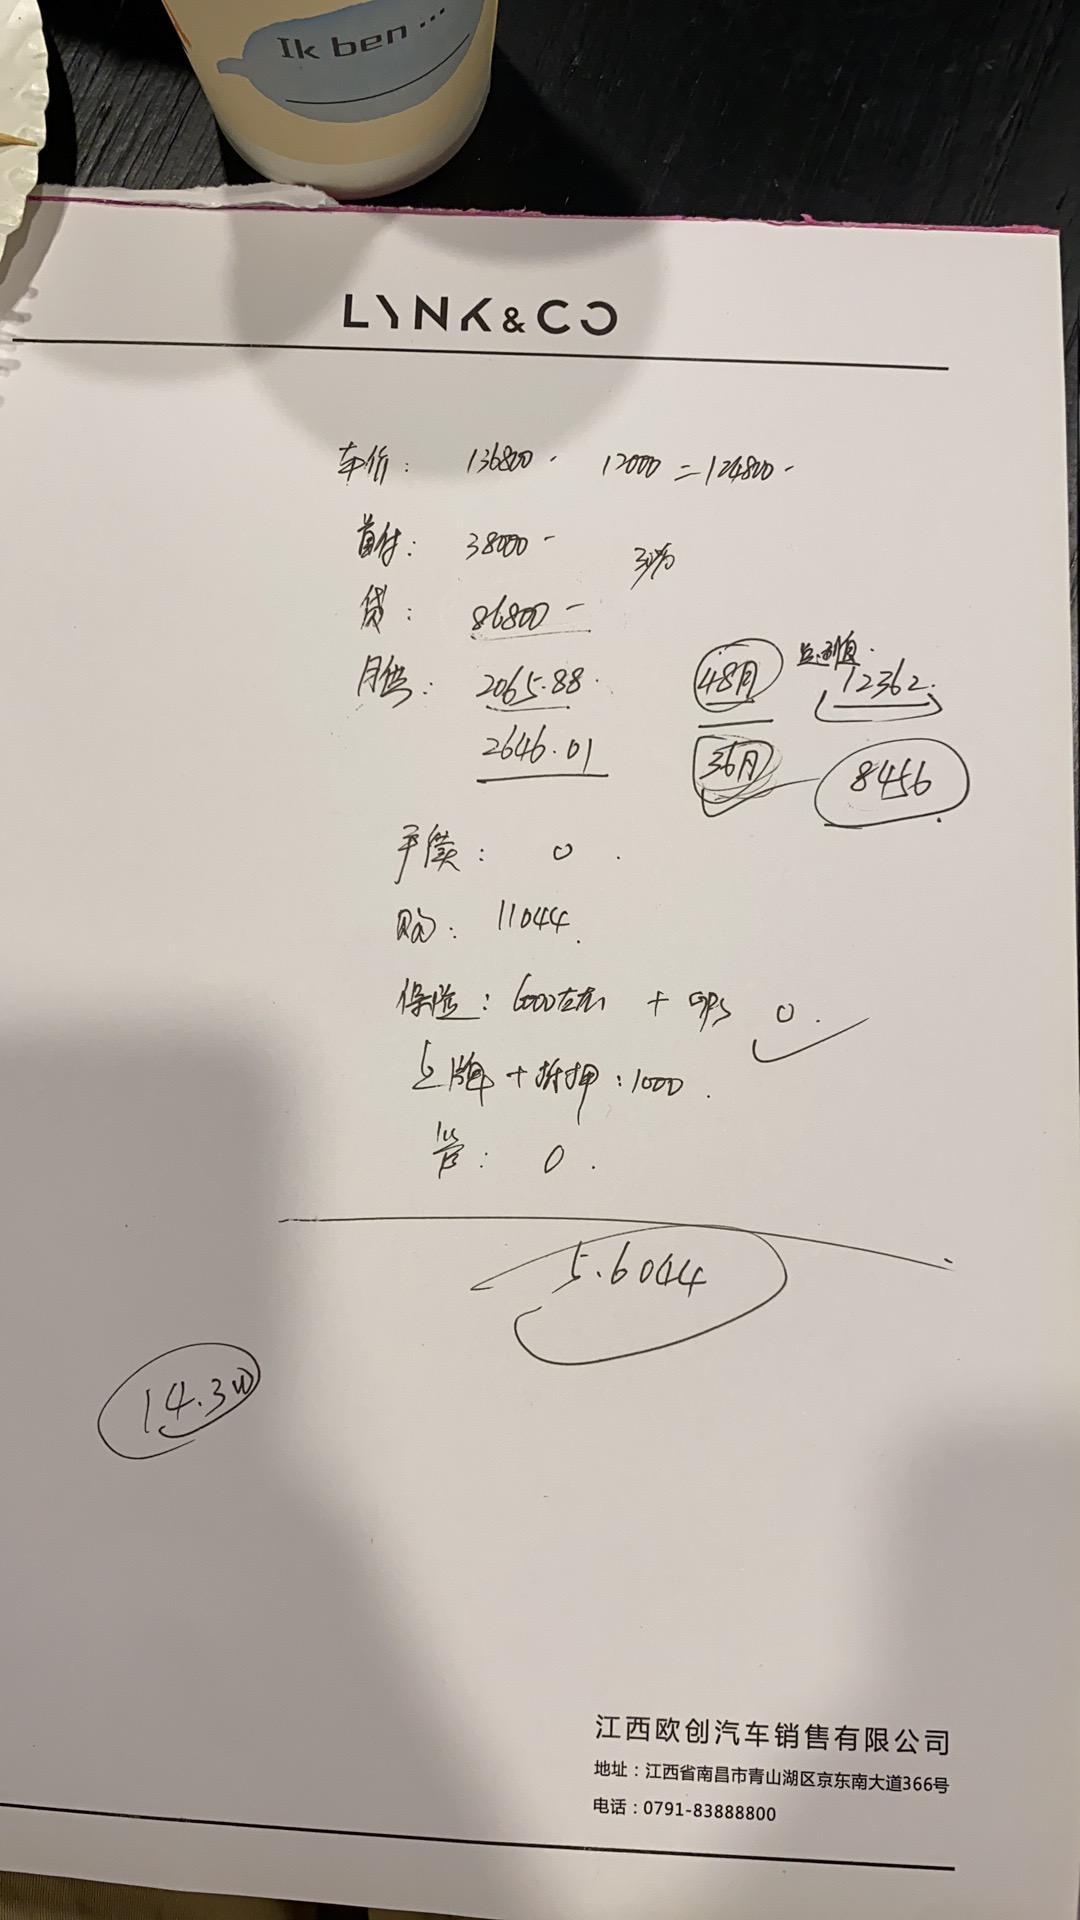 Ik ben ...
LYNK&CO
车价： 136800 - 12000 = 124800 -
首付： 38000 -
贷： 86800 -
月供： 2065.88 48月 总利息 12362.
2646.01 36月 8456
手续： 0 .
购： 11044.
保险： 6000左右 + GPS 0 .
上牌 + 抵押：1000 .
管： 0 .
5.6044
14.3W
江西欧创汽车销售有限公司
地址：江西省南昌市青山湖区京东南大道366号
电话：0791-83888800